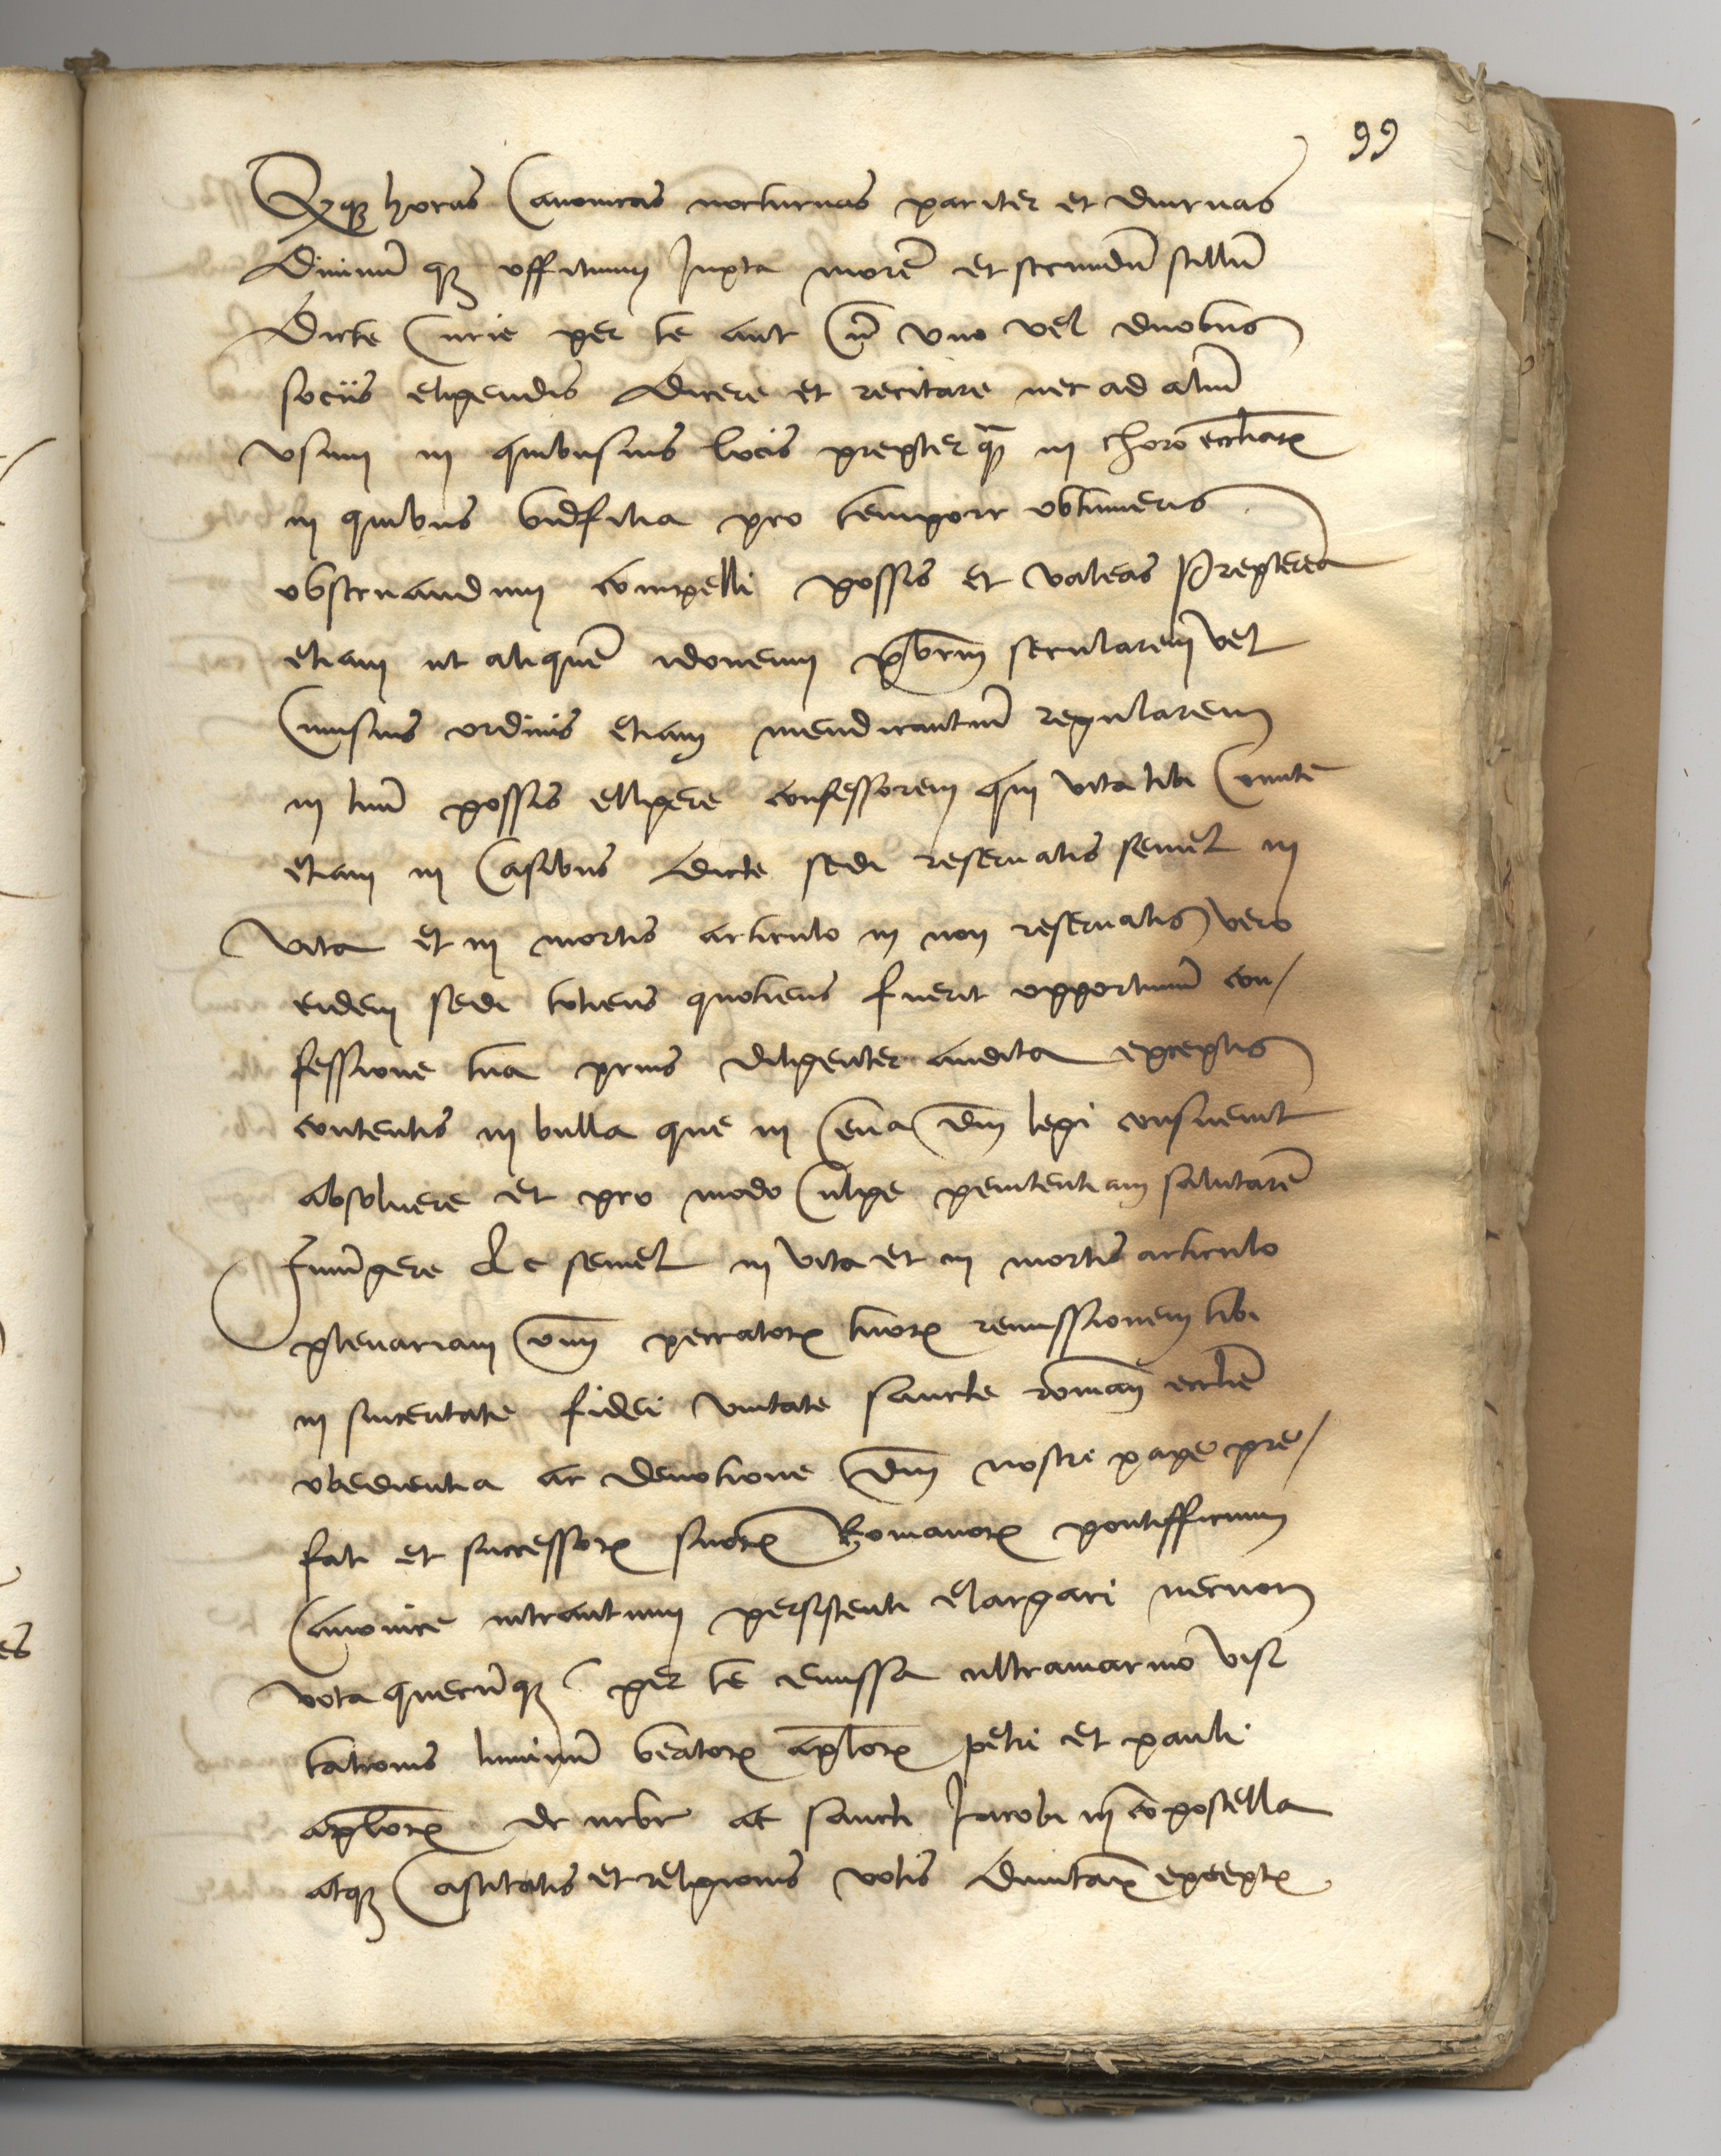 99
Quodque horas Canonicas nocturnas pariter et diurnas
Diuinũ qꝫ offitium Juxta morẽ et secundũ stillũ
Dicte Curie per te aut Cũ vno vel duobus
sociis eligendis dicere et recitare nec ad aliũ
vsum in quibusuis locis preter q̃ȝ in choro eccliaꝝ
in quibus bñfitia pro tempore obtinueris
obseruandum compelli possis et valeas Preterea
etiam ut aliquẽ idoneum p̃brm secularem vel
Cuiusuis ordinis etiam mendicantiũ regularem
in tuũ possis elligere confessorem qui vita tibi Comite
etiam in Casibus dicte sedi reseruatis semel in
vita et in mortis articulo in non reseruatis vero
eidem sedi totiens quotiens fuerit opportunũ con/
fessione tua prius diligenter audita exceptis
contentis in bulla que in Cena dñi legi consueuit
absoluere et pro modo Culpe penitentiam salutarẽ
Iniũgere Ac semel in vita et in mortis articulo
plenariam oĩm peccatoꝝ tuoꝝ remissionem tibi
in sinceritate fidei vnitate sancte romañ ecclie
obedientia ac deuotione dñi nostri pape pre/
fati et successoꝝ suoꝝ Romanoꝝ pontifficum
Canonice intrantium persistenti elargiri necnon
vota quecũqꝫ per te emissa ultramarino visi
tationis liminũ beatoꝝ aploꝝ petri et pauli
aploꝝ de urbe ac sancti Jacobi in cõpostella
atqꝫ Castitatis et religionis votis dumtaxat exceptꝭ